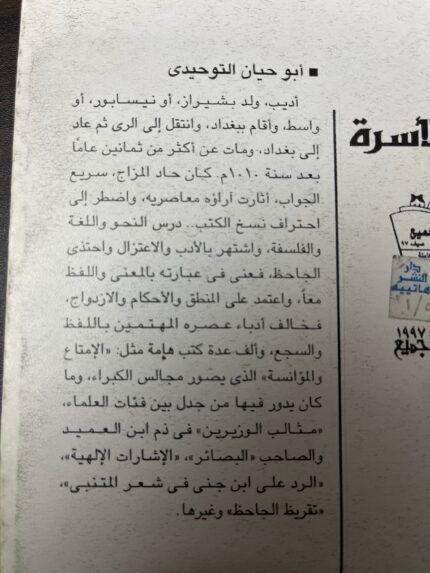 ■ أبو حيان التوحيدى
أديب، ولد بشيراز، أو نيسابور، أو
واسط، وأقام ببغداد، وانتقل إلى الرى ثم عاد
إلى بغداد، ومات عن أكثر من ثمانين عامًا
بعد سنة ١٠١٠م. كان حاد المزاج، سريع
الجواب، أثارت آراؤه معاصريه، واضطر إلى
احتراف نسخ الكتب.. درس النحو واللغة
والفلسفة، واشتهر بالأدب والاعتزال واحتذى
الجاحظ، فعنى فى عبارته بالمعنى واللفظ
معاً، واعتمد على المنطق والأحكام والازدواج،
فخالف أدباء عصره المهتمين باللفظ
والسجع، وألف عدة كتب هامة مثل: «الإمتاع
والمؤانسة» الذى يصور مجالس الكبراء، وما
كان يدور فيها من جدل بين فئات العلماء،
«مثالب الوزيرين» فى ذم ابن العميد
والصاحب «البصائر»، «الإشارات الإلهية»،
«الرد على ابن جنى فى شعر المتنبى»،
«تقريظ الجاحظ» وغيرها.
الأسرة
دار
النشر
١٩٩٧
للجميع